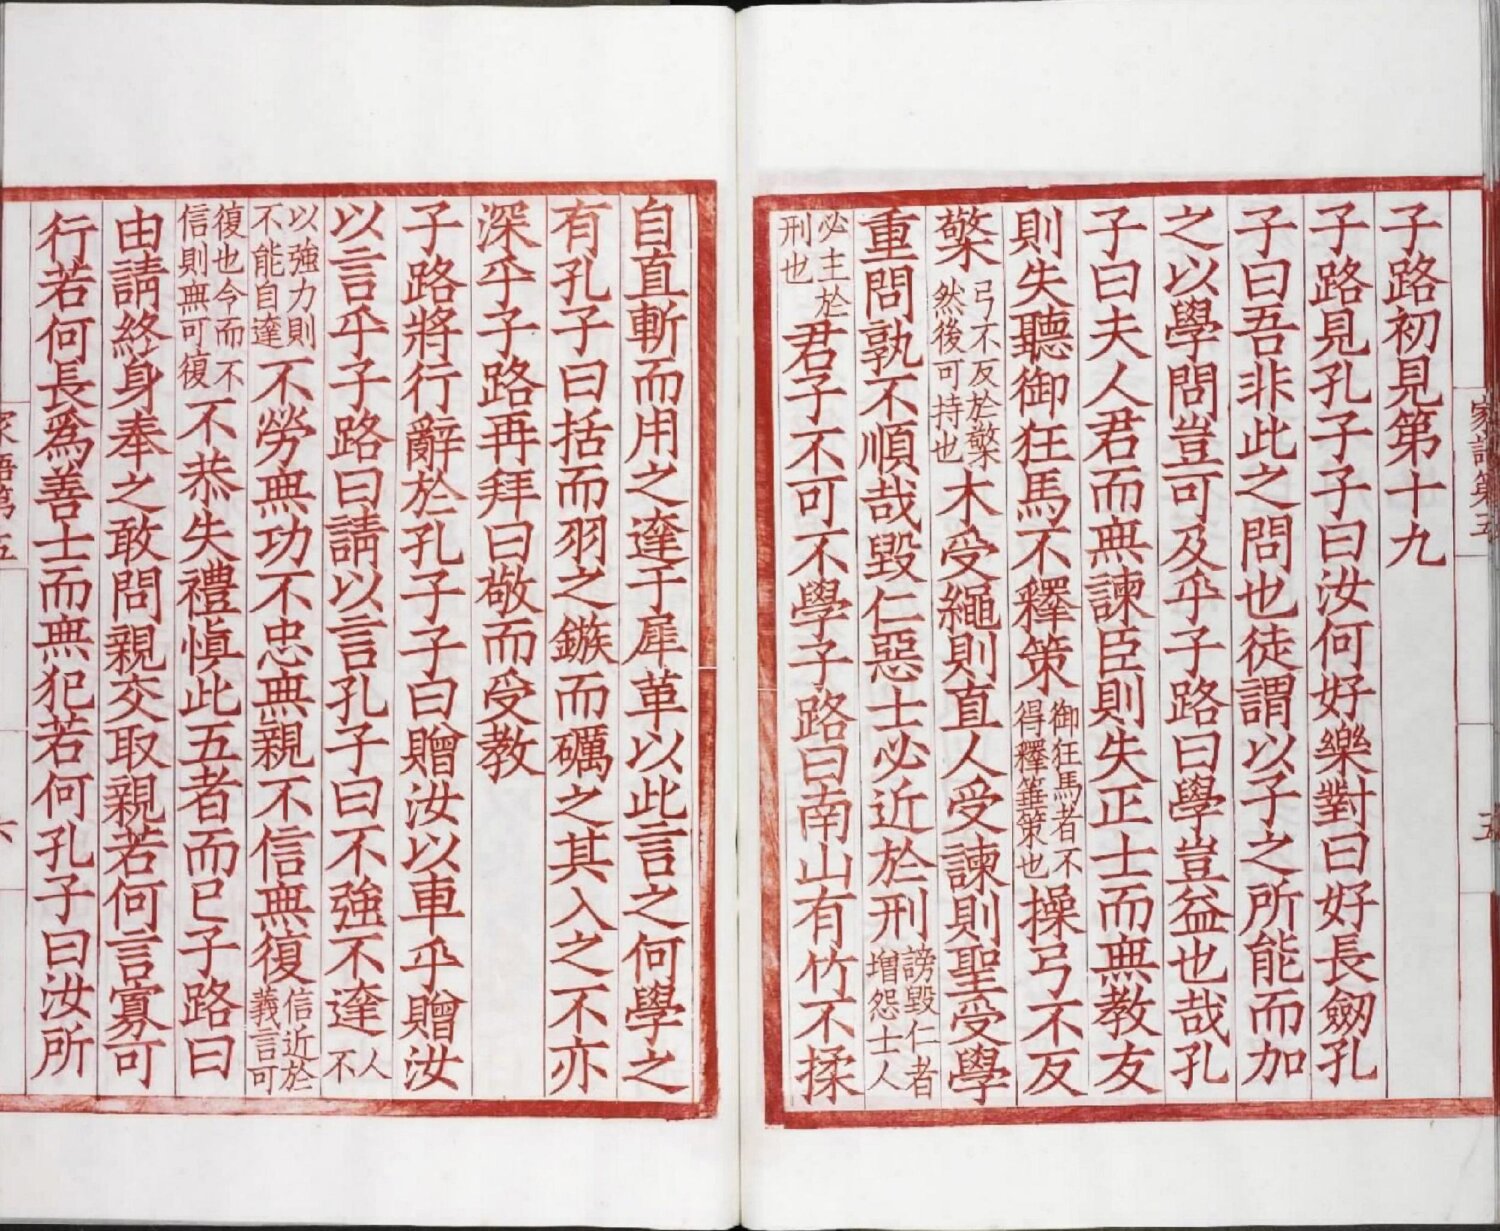 子路初見第十九
子路見孔子子曰汝何好樂對曰好長劒孔
子曰吾非此之問也徒謂以子之所能而加
之以學問豈可及乎子路曰學豈益也哉孔
子曰夫人君而無諫臣則失正士而無教友
則失聽御狂馬不釋策御狂馬者不得釋箠策也操弓不反
檠弓不反於檠然後可持也木受繩則直人受諫則聖受學
重問孰不順哉毀仁惡士必近於刑謗毀仁者增怨士人
必主於刑也君子不可不學子路曰南山有竹不揉
自直斬而用之達于犀革以此言之何學之
有孔子曰括而羽之鏃而礪之其入之不亦
深乎子路再拜曰敬而受教
子路將行辭於孔子子曰贈汝以車乎贈汝
以言乎子路曰請以言孔子曰不強不達人不
以強力則不能自達不勞無功不忠無親不信無復信近於義言可
復也今而不信則無可復不恭失禮慎此五者而已子路曰
由請終身奉之敢問親交取親若何言寡可
行若何長為善士而無犯若何孔子曰汝所
家語第五
五
家語第五
六